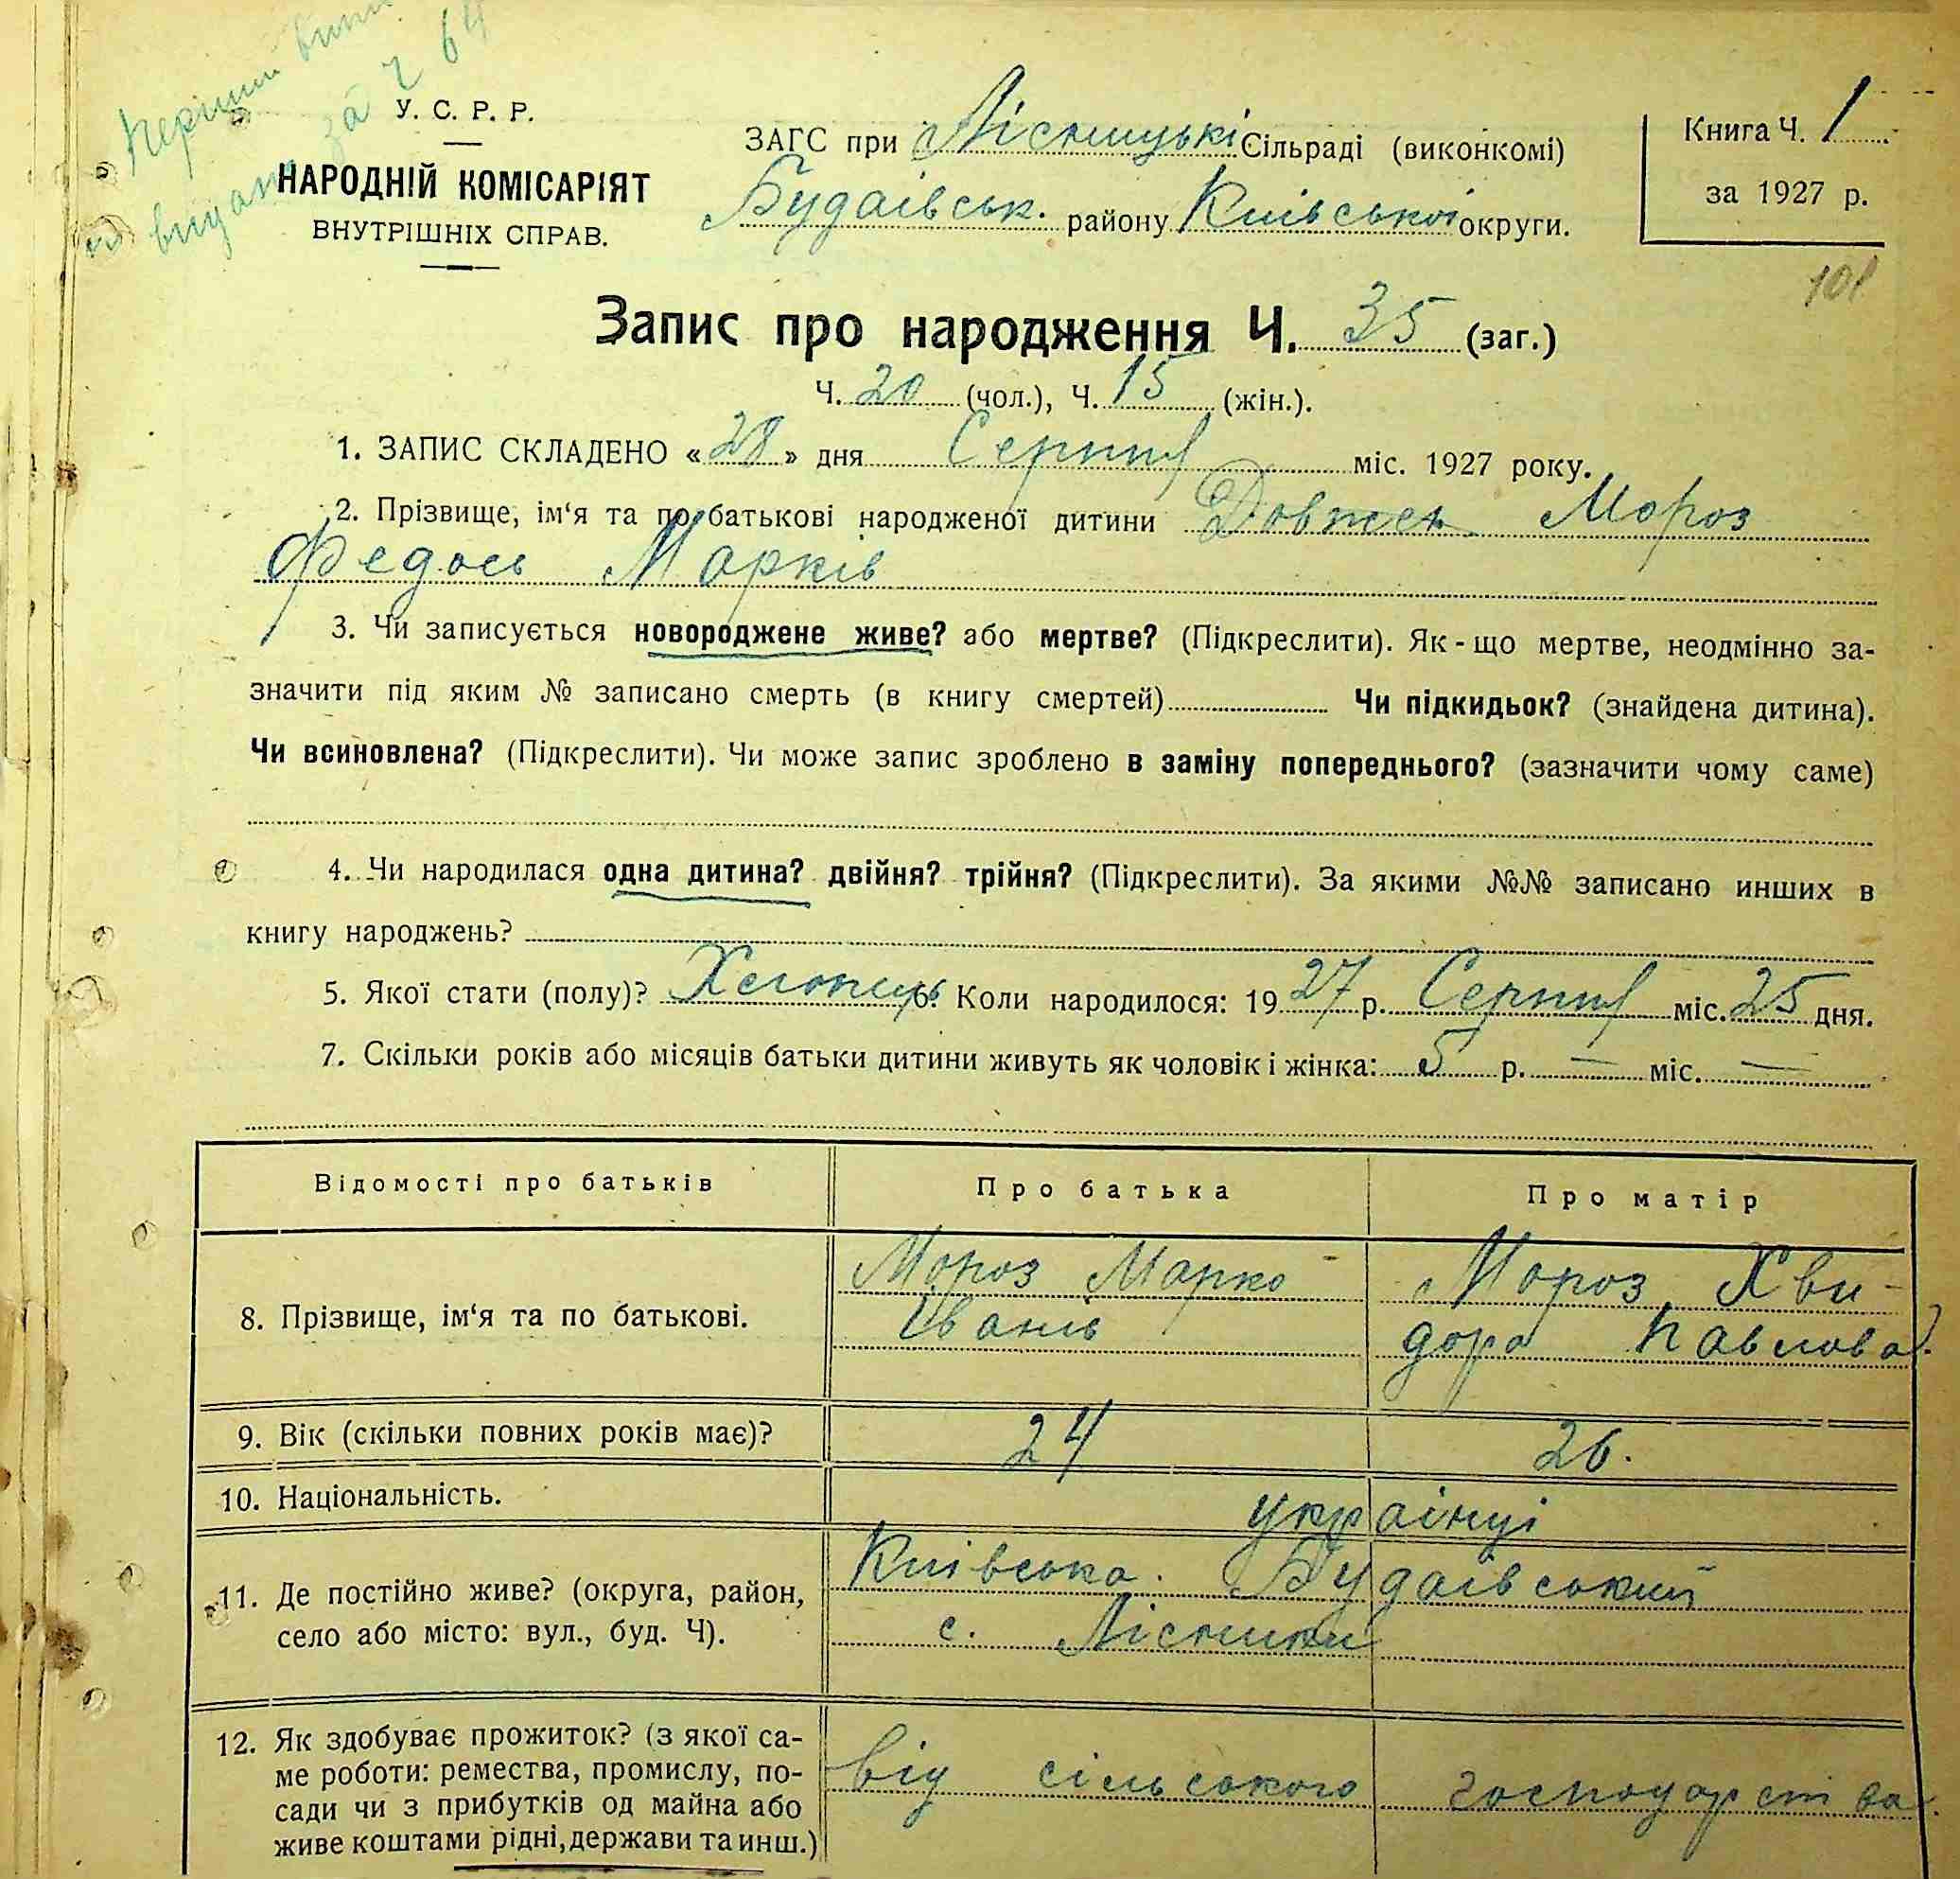 Перший
видано за Ч 64
У. С. Р. Р.
НАРОДНІЙ КОМІСАРІЯТ
ВНУТРІШНІХ СПРАВ.
ЗАГС при Лісницькі Сільраді (виконкомі)
Будаівськ. району Київськоі округи.
Книга Ч. 1
за 1927 р.
101
Запис про народження Ч. 35 (заг.)
Ч. 20 (чол.), Ч. 15 (жін.).
1. ЗАПИС СКЛАДЕНО « 28 » дня Серпня міс. 1927 року.
2. Прізвище, ім‘я та по батькові народженої дитини Мороз
Федось Марків
3. Чи записується новороджене живе? або мертве? (Підкреслити). Як - що мертве, неодмінно за-
значити під яким № записано смерть (в книгу смертей) Чи підкидьок? (знайдена дитина).
Чи всиновлена? (Підкреслити). Чи може запис зроблено в заміну попереднього? (зазначити чому саме)
4. Чи народилася одна дитина? двійня? трійня? (Підкреслити). За якими №№ записано инших в
книгу народжень?
5. Якої стати (полу)? Хлопець 6. Коли народилося: 1927 р. Серпня міс. 25 дня.
7. Скільки років або місяців батьки дитини живуть як чоловік і жінка: 5 р. — міс. —
Відомості про батьків Про батька Про матір
8. Прізвище, ім‘я та по батькові.
Мороз Марко
Іванів
Мороз Хви-
дора Павлова.
9. Вік (скільки повних років має)? 24 26.
10. Національність. українці
11. Де постійно живе? (округа, район,
село або місто: вул., буд. Ч).
Київська. Будаівський
с. Лісники
12. Як здобуває прожиток? (з якої са-
ме роботи: ремества, промислу, по-
сади чи з прибутків од майна або
живе коштами рідні, держави та инш.)
від сільського господарства